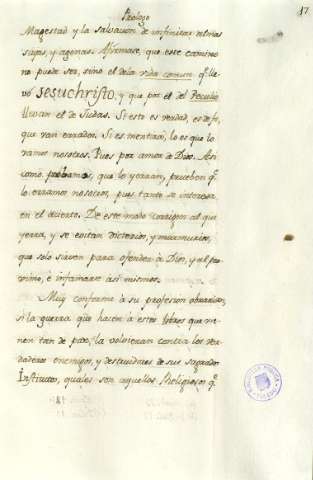 Prologo
17
Magestad y la salvacion de infinitas
suyas, y agenas. Afirmase, que este camino
no puede ser, sino el de la vida comun q.e lle
vó JESUCHRISTO, y que por el del Peculio
llevan el de Judas. Si esto es verdad, es de fe,
que van errados. Si es mentira, lo es que lo
vamos nosotros. Pues por amor de Dios. Asi
como probamos, que lo yerran, prueben q.e
lo erramos nosotros, pues tanto se interesa
en el acierto. De este modo corrigen al que
yerra, y se evitan dicterios, y murmuracion,
que solo sirven para ofender à Dios, y al pro
ximo, è infamarse asi mismos.
Muy conforme à su profesion obrarian,
si la guerra que hacen à estos pobres que vi
nen tan de paz, la volvieran contra los ver
daderos enemigos, y destruidores de sus sagrados
Institutos, quales son aquellos Religiosos q.e